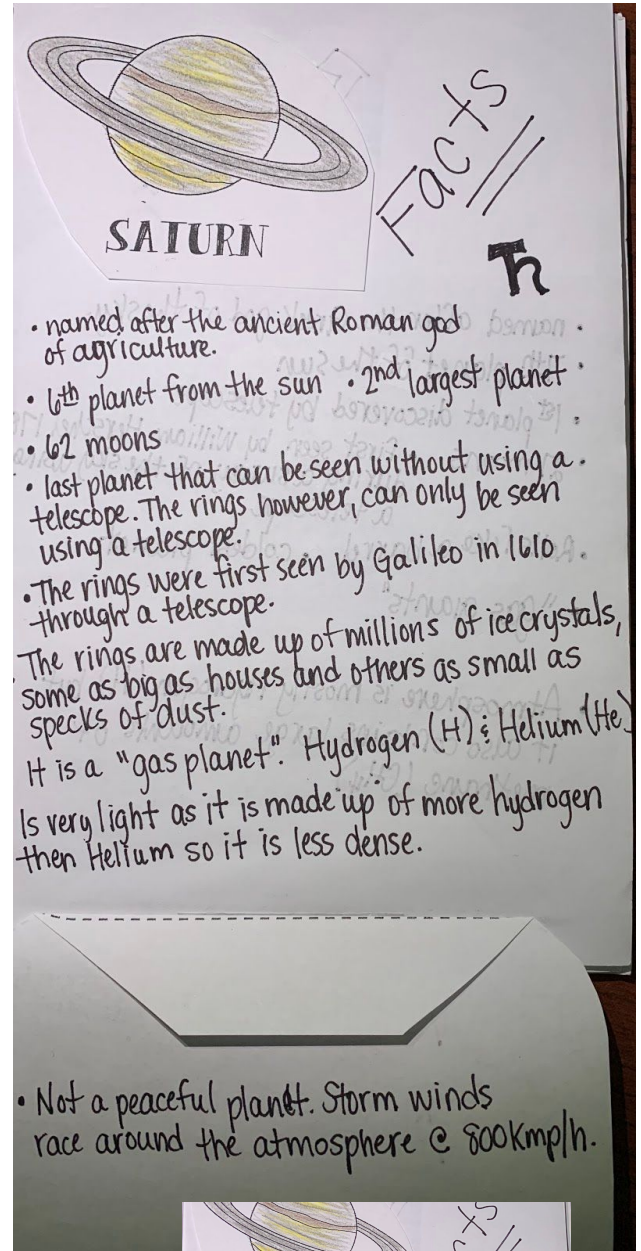 Facts
SATURN
• named after the ancient Roman god
of agriculture.
• 6th planet from the sun • 2nd largest planet
• 62 moons
• last planet that can be seen without using a
telescope. The rings however, can only be seen
using a telescope.
• The rings were first seen by Galileo in 1610
through a telescope.
The rings are made up of millions of ice crystals,
some as big as houses and others as small as
specks of dust.
It is a "gas planet". Hydrogen (H) & Helium (He)
Is very light as it is made up of more hydrogen
then Helium so it is less dense.
• Not a peaceful planet. Storm winds
race around the atmosphere @ 800Kmp/h.